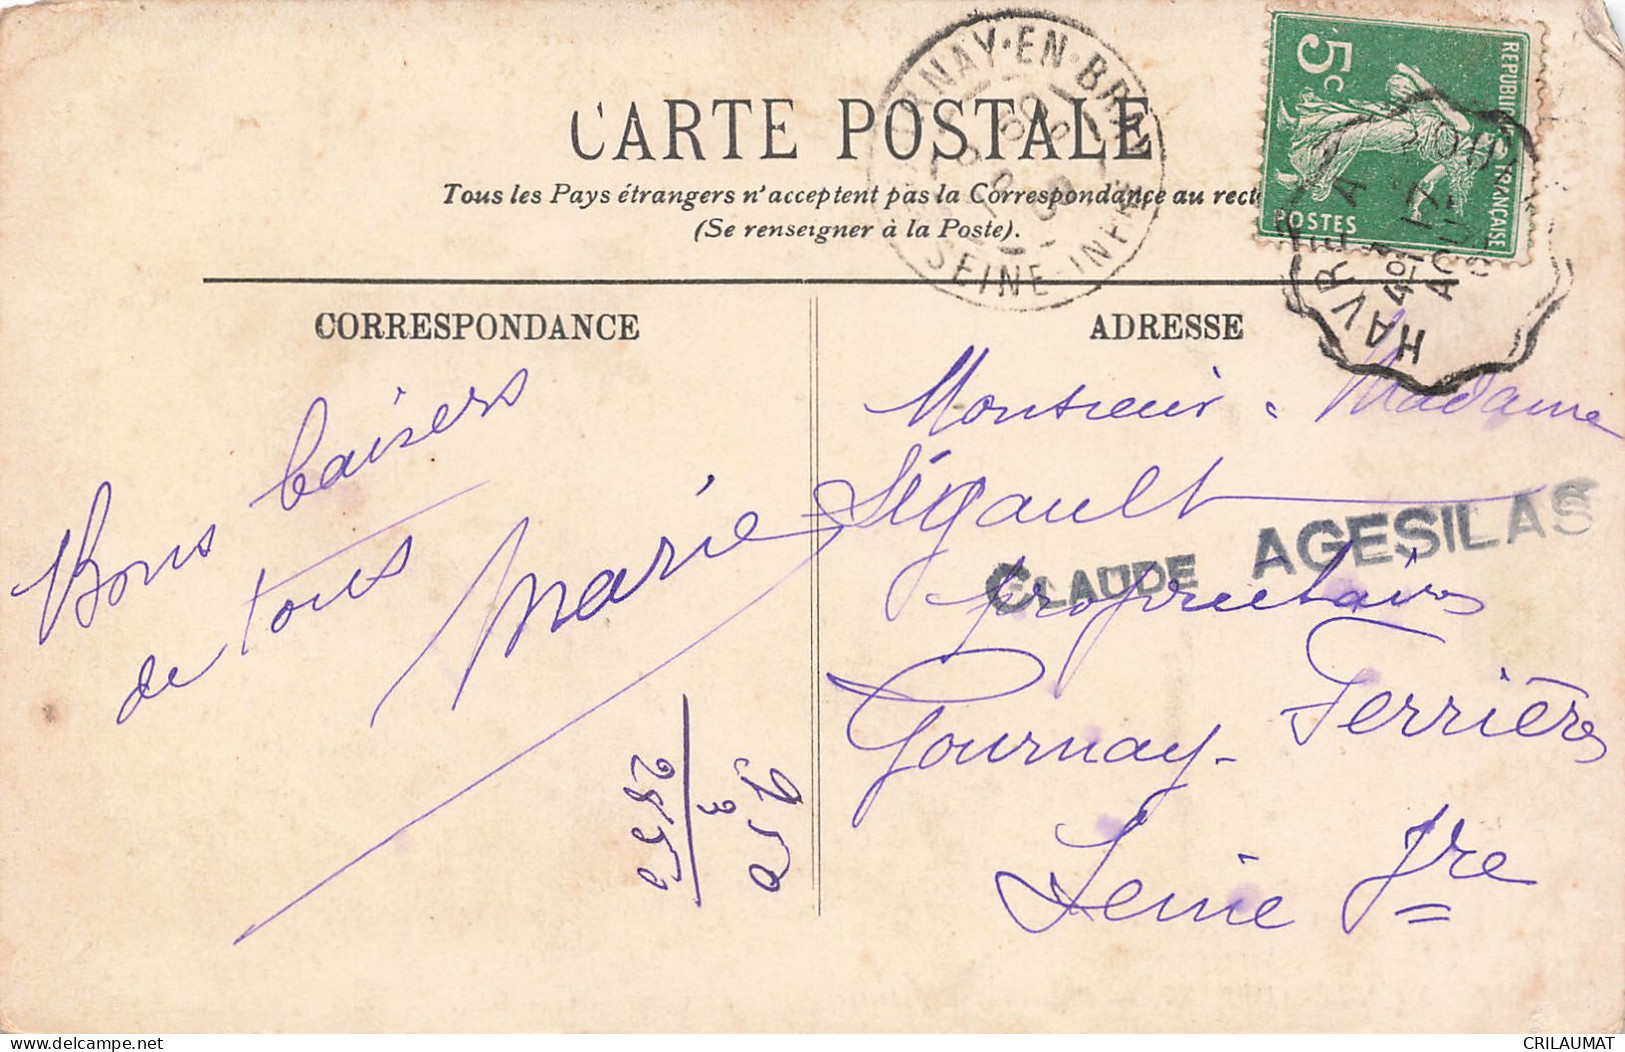 CARTE POSTALE
Tous les Pays étrangers n'acceptent pas la Correspondance au rect
(Se renseigner à la Poste).
RNAY-EN-BRAY
SEINE-INFRE
5c
REPUBLIQUE FRANÇAISE
POSTES
HAVRE A
AOUT
CORRESPONDANCE
Bons baisers
de tous
Marie
950
3
2850
ADRESSE
Monsieur Madame
Ségault
CLAUDE AGESILAS
propriétaires
Gournay-Ferrières
Seine Jre
delcampe.net
CRILAUMAT